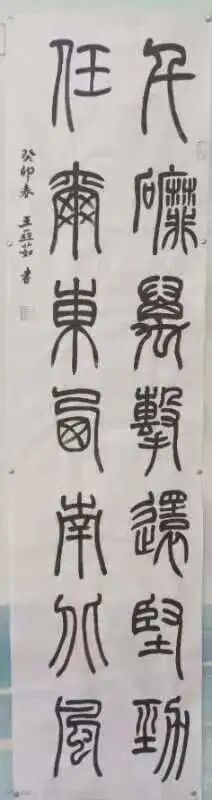 千磨萬擊還堅勁
任爾東西南北風
癸卯春 王亞茹 書